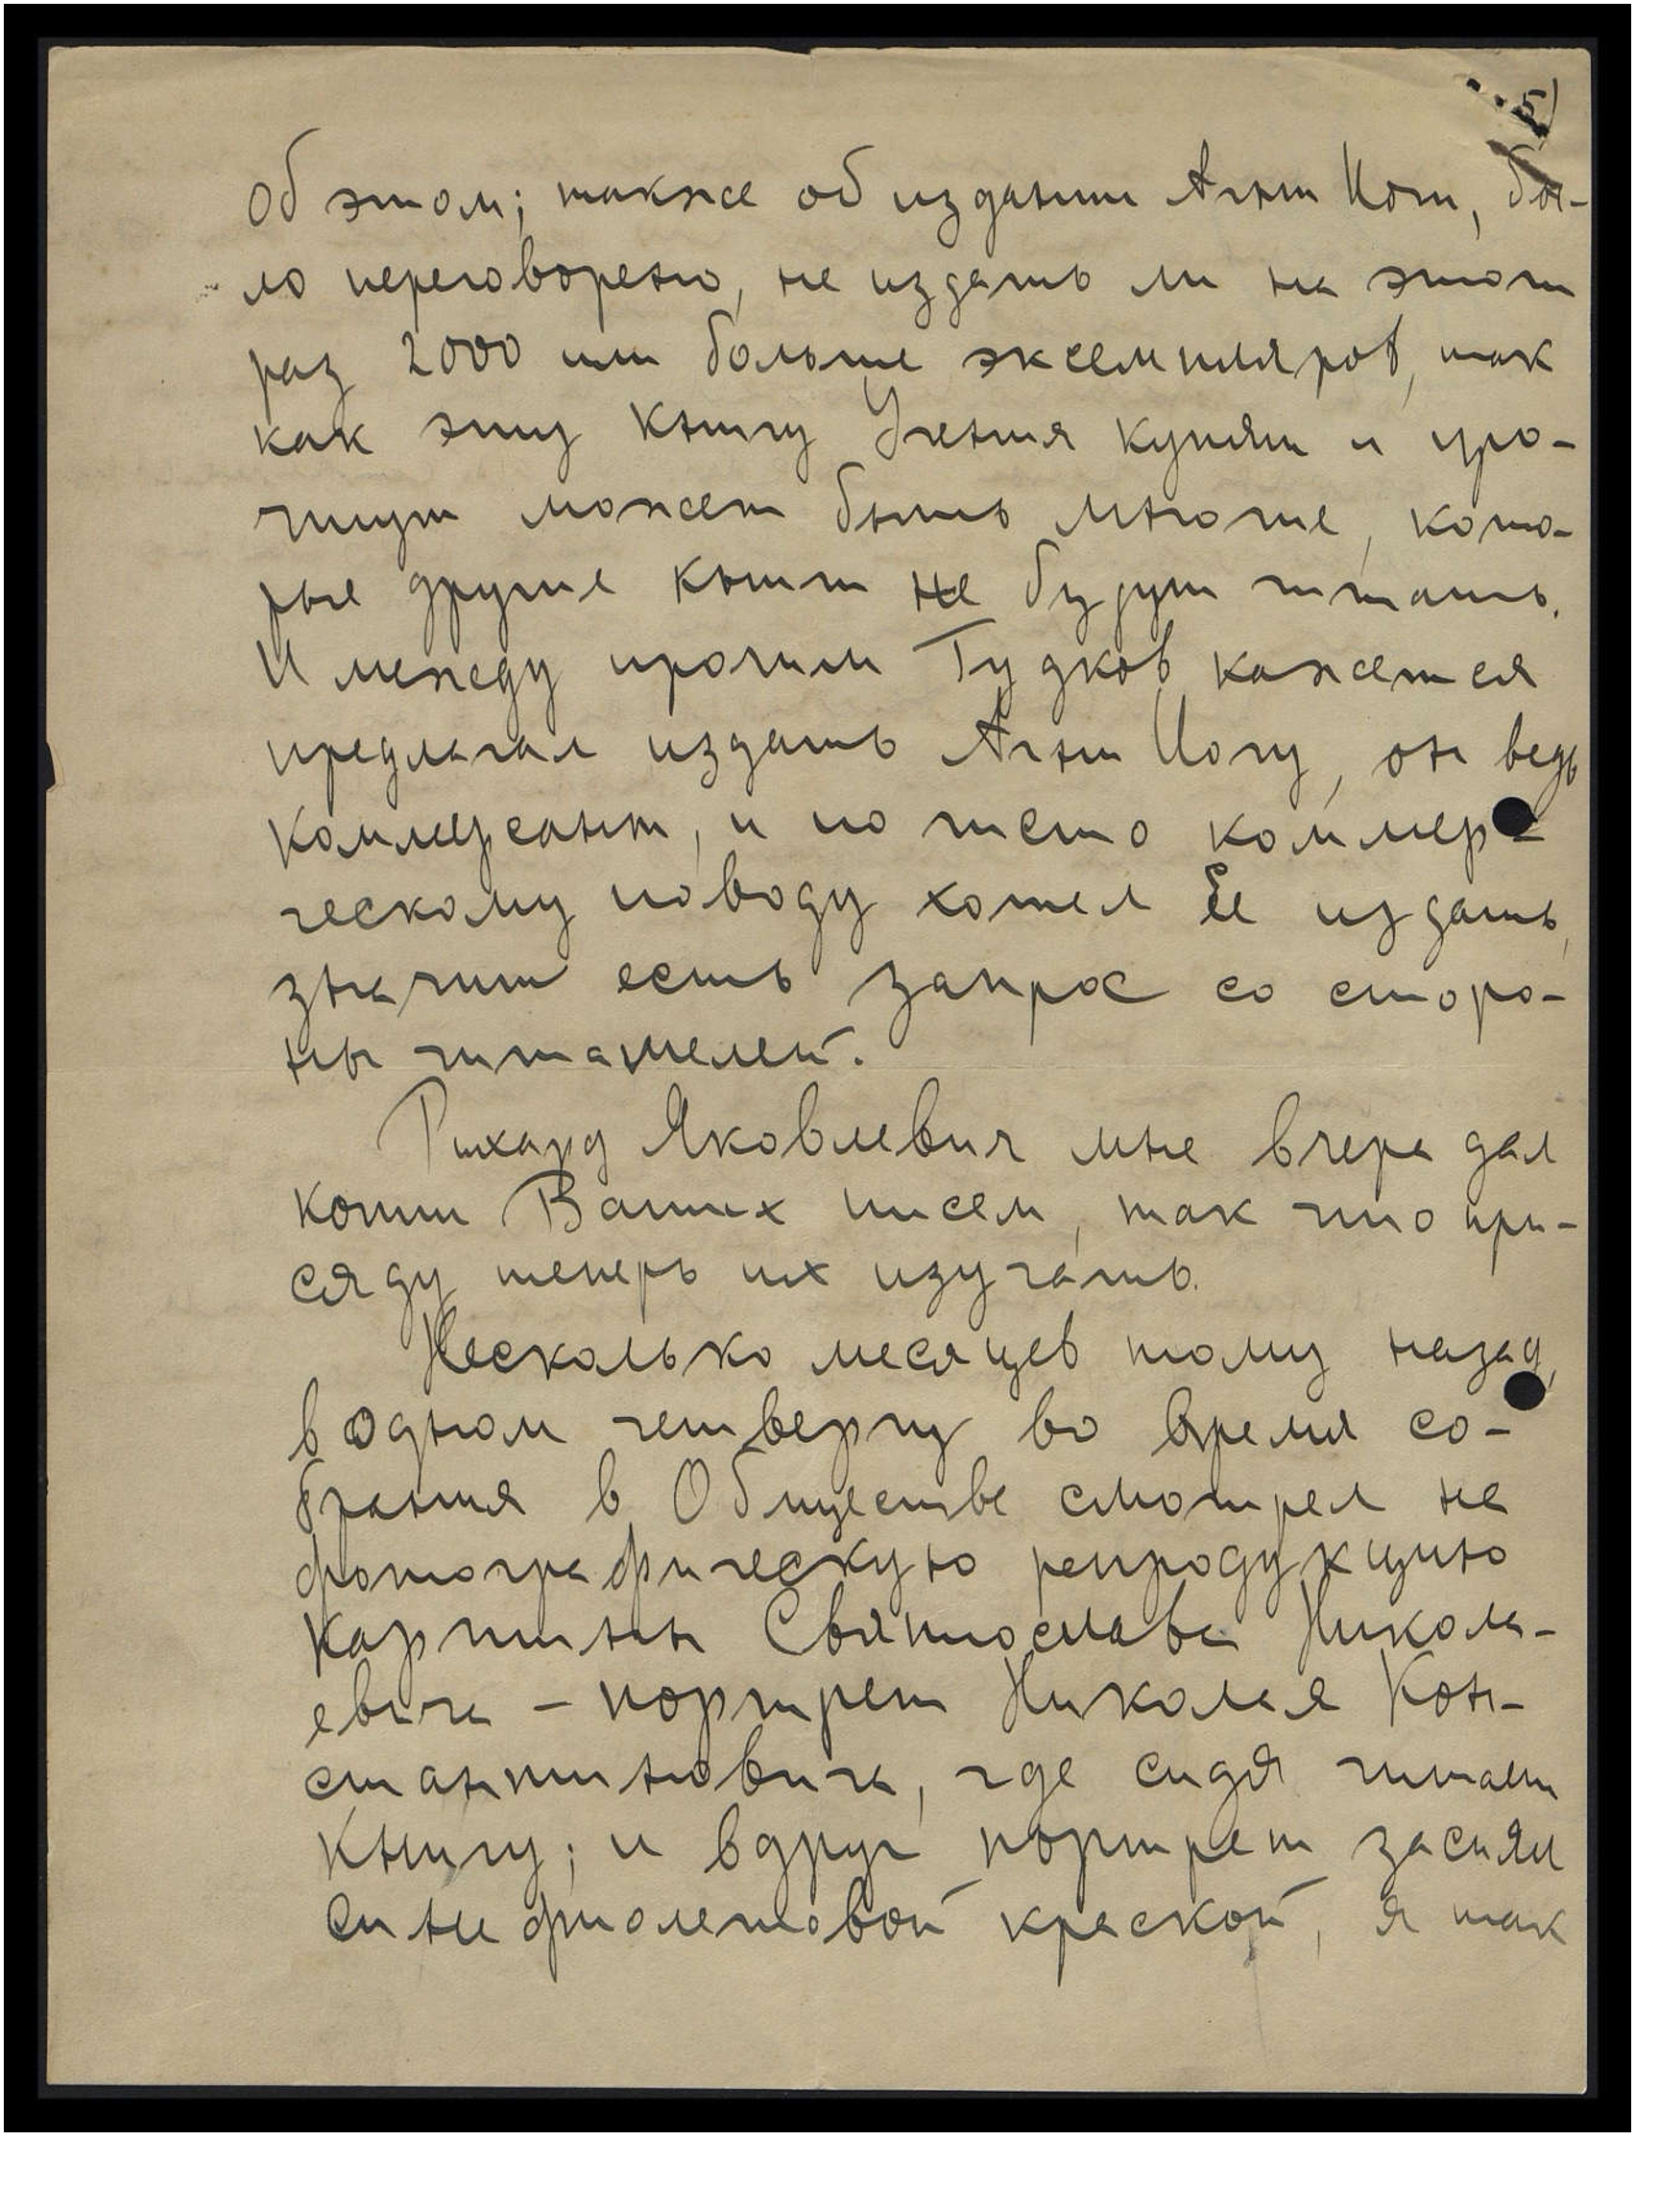 5)
об этом; также об издании Агни Йоги, бы-
ло переговорено, не издать ли на этот
раз 2000 или больше экземпляров, так
как эту книгу Учения купят и про-
чтут может быть многие, кото-
рые другие книги не будут читать.
И между прочим Гудков кажется
предлагал издать Агни Йогу, он ведь
коммерсант, и по чисто коммер-
ческому поводу хотел Ее издать,
значит есть запрос со сторо-
ны читателей.
Рихард Яковлевич мне вчера дал
копии Ваших писем, так что при-
сяду теперь их изучать.
Несколько месяцев тому назад,
в одном четвергу во время со-
брания в Обществе смотрел на
фотографическую репродукцию
картины Святослава Никола-
евича – портрет Николая Кон-
стантиновича, где сидя читает
книгу; и вдруг портрет засиял
сине фиолетовой краской, я так